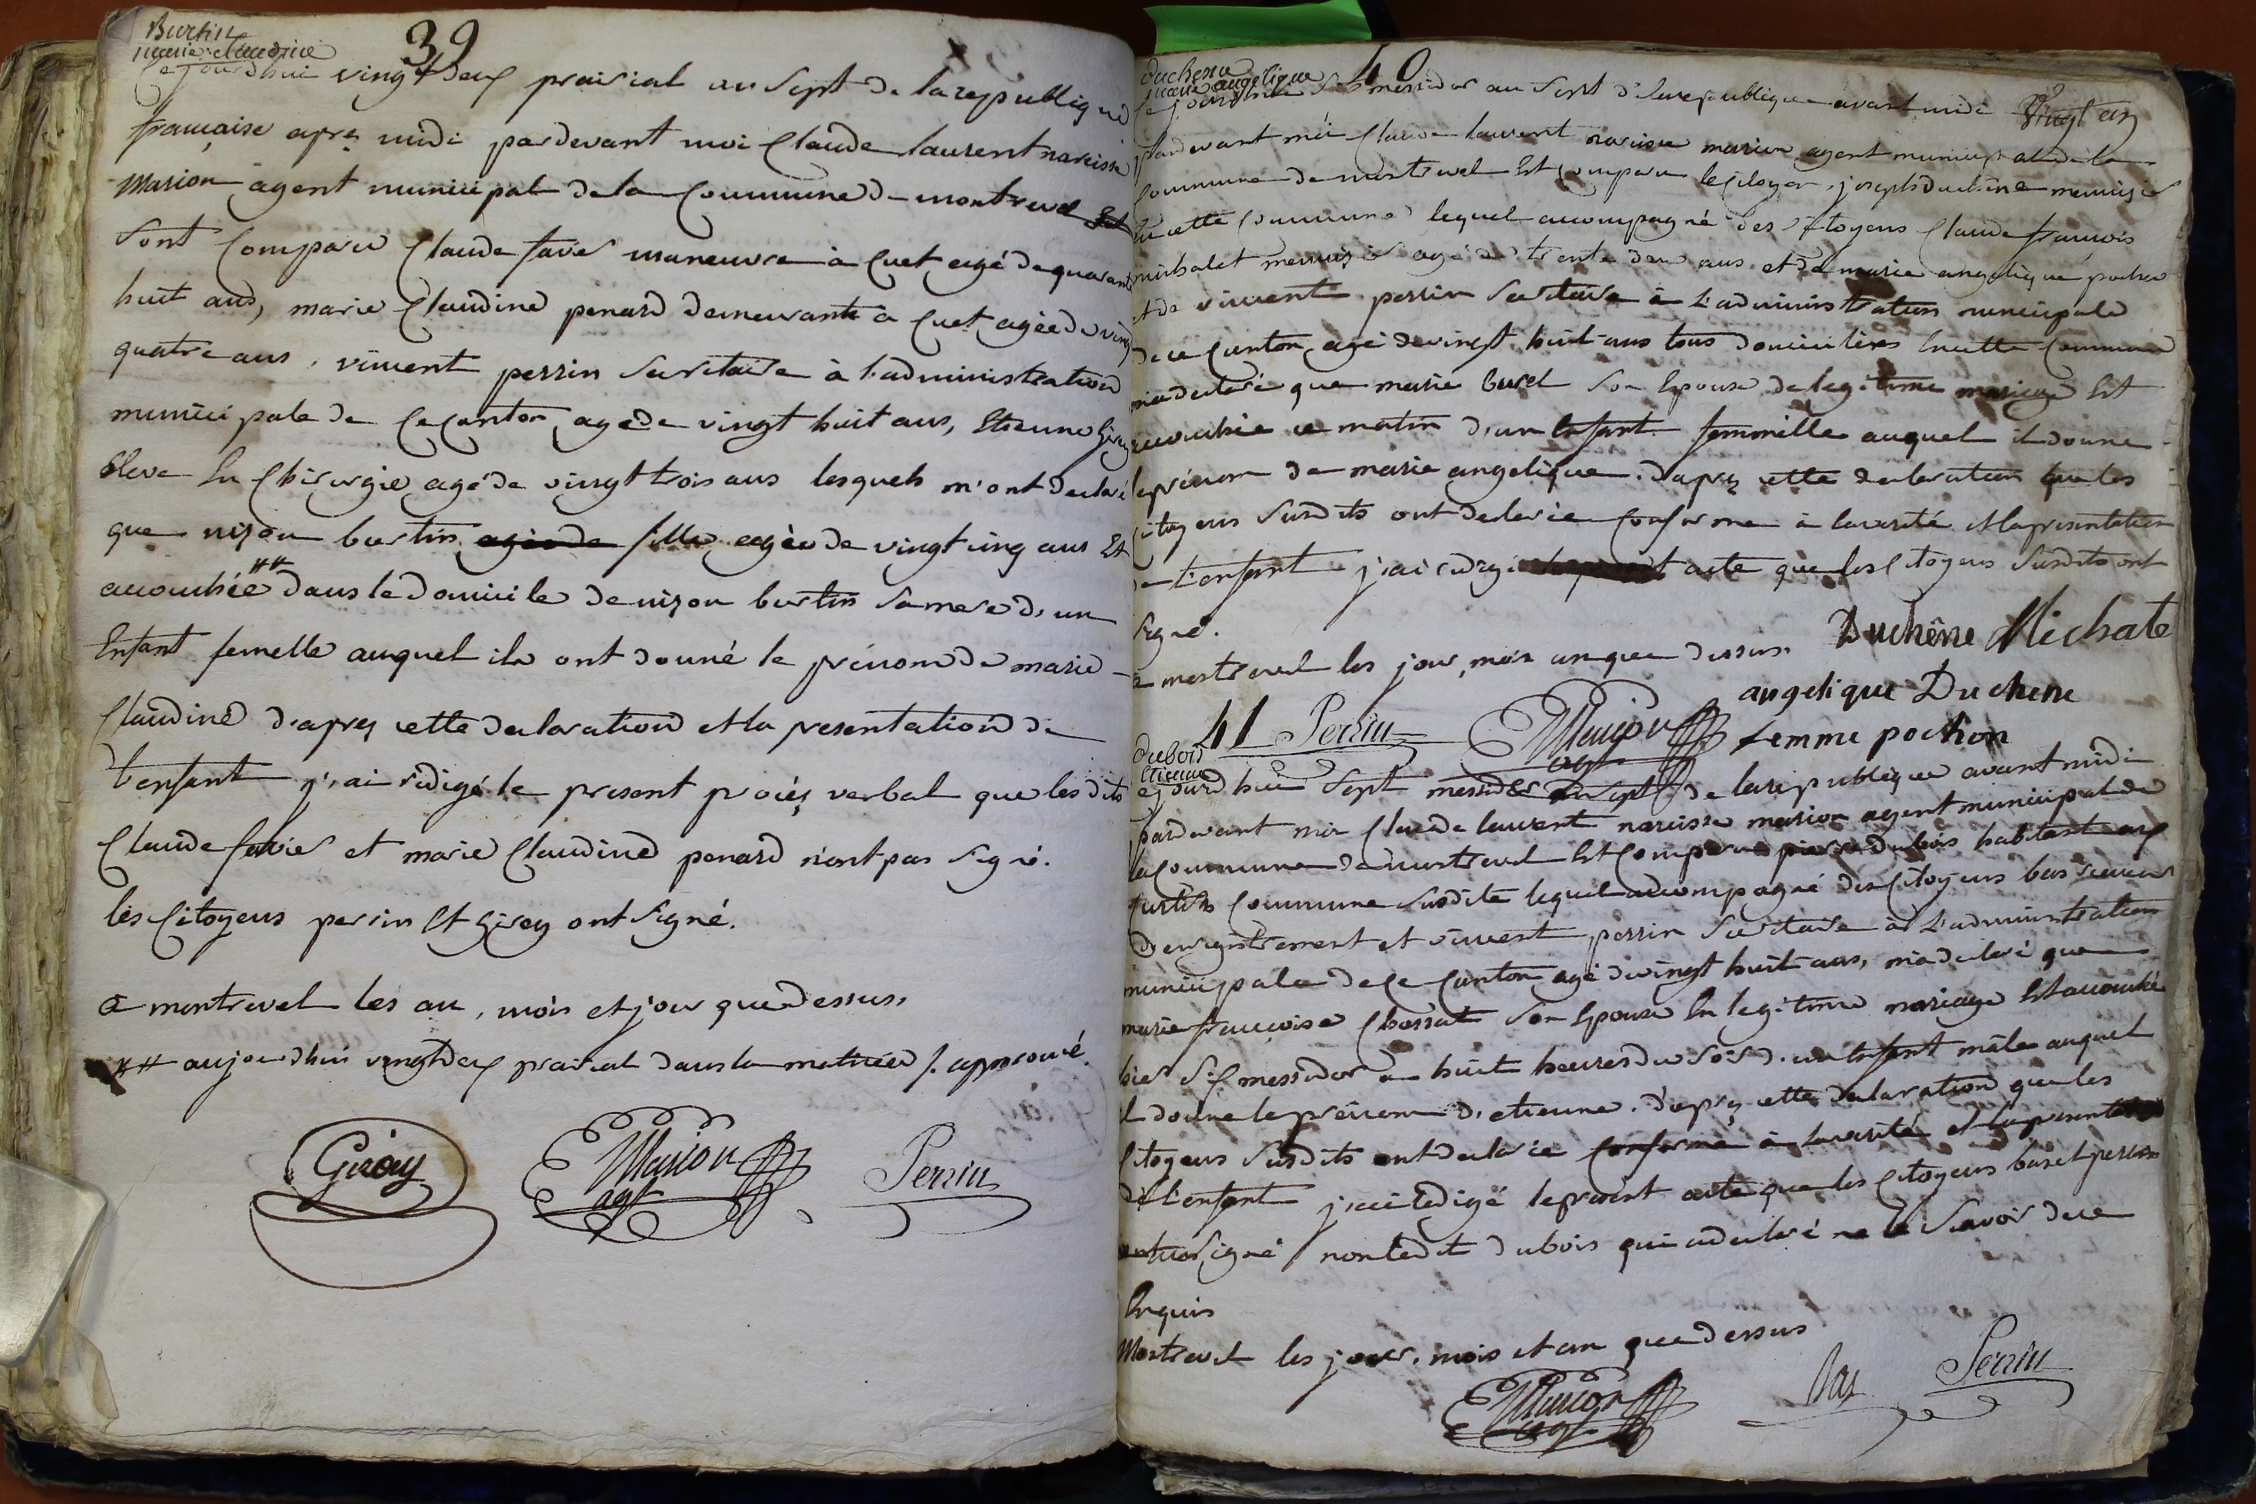 Burtin
marie claudine
39
Cejourdhui vingt deux prairial an sept de la republique
française aprez midi pardevant moi Claude laurent narcisse
Marion agent municipal de la Commune de montrevel
Sont Comparu Claude favier maneuvre à Cuet agé de quarante
huit ans, marie Claudine penard demeurante a Cuet agée de vingt
quatre ans, vincent perrin secrétaire à l'administration
municipale de Ce Canton agé de vingt huit ans, Etienne Giroy
Eleve En Chirurgie agé de vingt trois ans lesquels m'ont declaré
que nizon burtin agée de fille agée de vingt cinq ans Et
accouchée ## dans le domicile de nizon burtin sa mere d'un
Enfant femelle auquel ils ont donné le prénom de marie
Claudine d'aprez cette declaration et la presentation de
l'enfant j'ai rédigé le present procéz verbal que les dits
Claude favier et marie Claudine penard n'ont pas signé.
les Citoyens perrin Et Giroy ont signé.
a montrevel les an, mois et jour que dessus,
## aujourdhui vingt deux prairial dans la matinée /. approuvé
Giroy Marion agt Perrin
duchesne
marie angelique
40
Cejourdhui six messidor an sept de la republique avant midi
pardevant moi Claude laurent narcisse marion agent municipal de la
Commune de montrevel Est Comparu le Citoyen joseph duchêne menuisier
En cette Commune lequel accompagné des Citoyens Claude françois
michalet menuisier agé de trente deux ans et de marie angelique
et de vincent perrin secrétaire à l'administration municipale
de ce Canton agé de vingt huit ans tous domiciliés En cette Commune
m'a declaré que marie burel son Epouse de legitime mariage Est
accouchée ce matin d'un Enfant femmelle auquel il donne
le prénom de marie angelique. d'aprez cette declaration que les
Citoyens susdits ont declarée Conforme à la verité et la presentation
de l'enfant j'ai rédigé acte que les Citoyens susdits ont
signé.
a montrevel les jour, mois an que dessus. Duchêne Michalet
angelique Duchene
femme pochon
Perrin Marion agt
41
dubois
etienne
Cejourdhui sept messidor an sept de la republique avant midi
pardevant moi Claude laurent narcisse marion agent municipal de
la Commune de montrevel Est Comparu pierre dubois habitant aux
curtils Commune susdite lequel accompagné des Citoyens bas receveur
d'enregistrement et vincent perrin secrétaire à l'administration
municipale de ce Canton agé de vingt huit ans, m'a declaré que
marie françoise Chossat son Epouse En legitime mariage Est accouchée
hier six messidor a huit heures du soir d'un Enfant mâle auquel
il donne le prénom d'etienne. d'aprez cette declaration que les
Citoyens susdits ont declarée Conforme à la verité et la presentation
de l'enfant j'ai rédigé le present acte que les Citoyens bas et perrin
ont signé non ledit dubois qui a declaré ne le savoir de ce
Enquis
Montrevel les jour, mois et an que dessus
Marion agt Bas Perrin